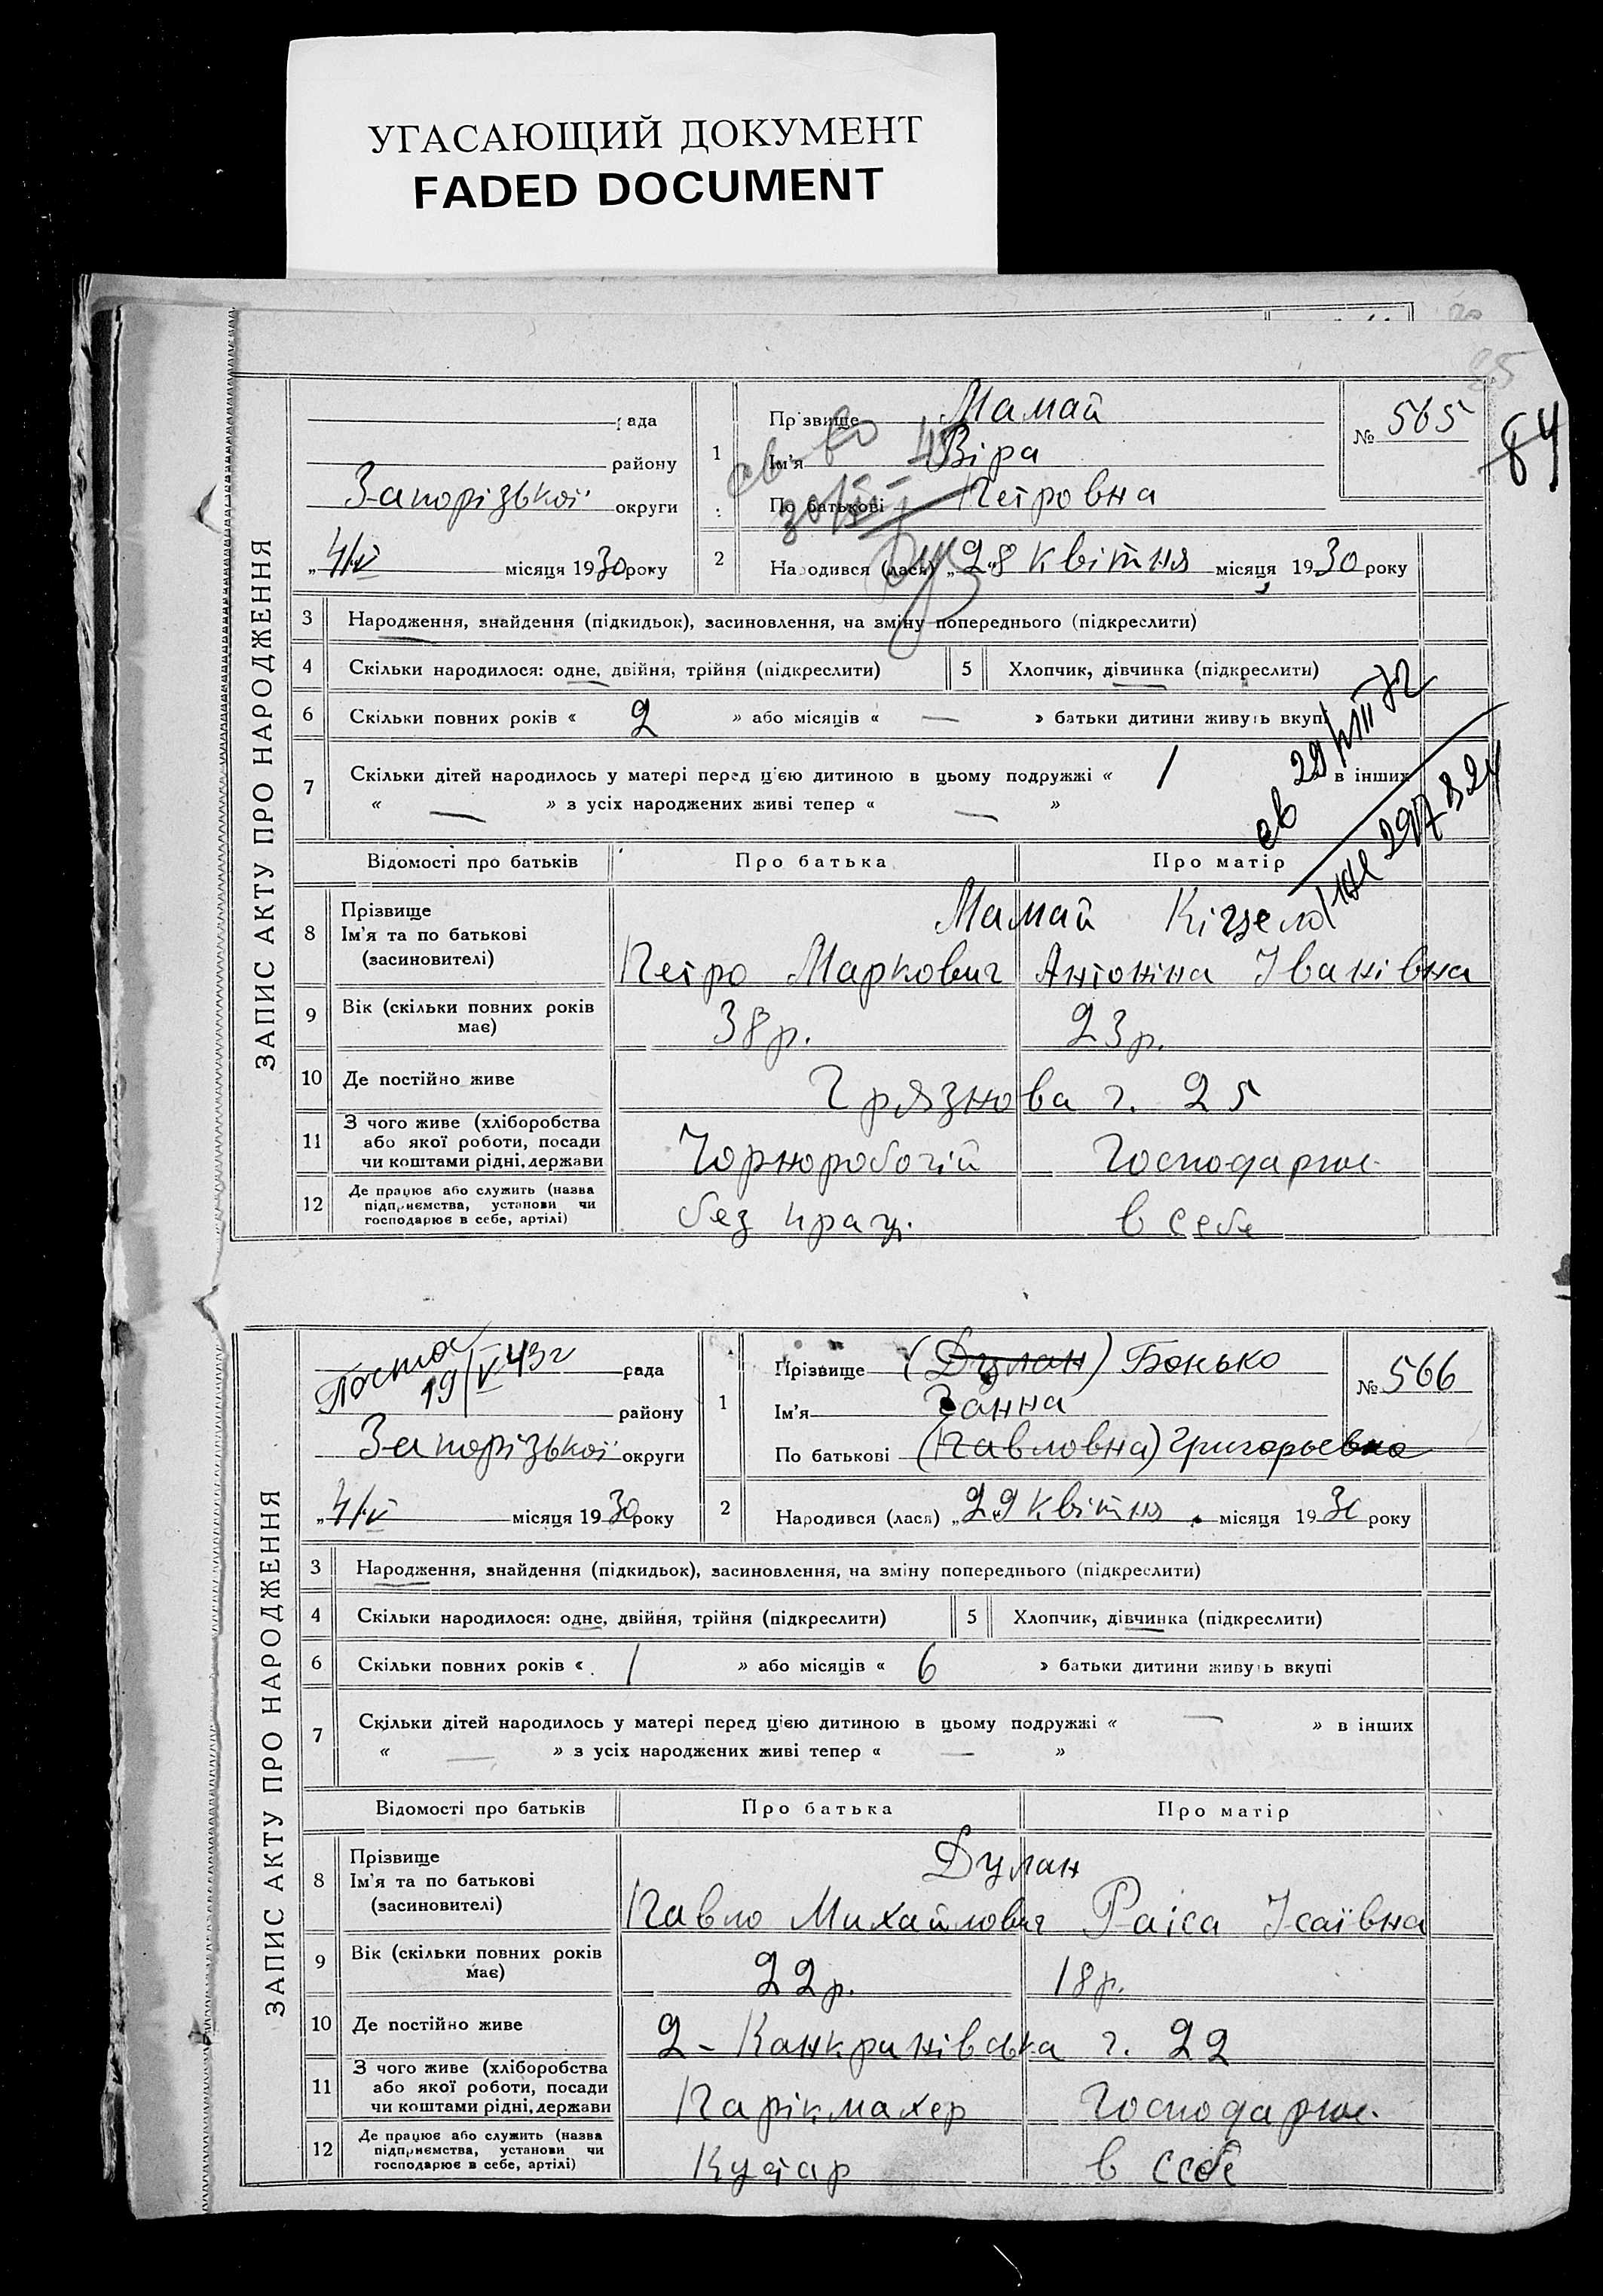 УГАСАЮЩИЙ ДОКУМЕНТ
FADED DOCUMENT
85
84
ЗАПИС АКТУ ПРО НАРОДЖЕННЯ
рада
району
Запорізької округи
„4/V місяця 1930 року
1 Прізвище Мамай
Ім'я Віра
По батькові Петровна
№ 565
2 Народився (лася) „28 квітня місяця 1930 року
3 Народження, знайдення (підкидьок), засиновлення, на зміну попереднього (підкреслити)
4 Скільки народилося: одне, двійня, трійня (підкреслити) 5 Хлопчик, дівчинка (підкреслити)
6 Скільки повних років « 2 » або місяців « — » батьки дитини живуть вкупі
7 Скільки дітей народилось у матері перед цією дитиною в цьому подружжі « 1 в інших
« — » з усіх народжених живі тепер « — »
Відомості про батьків Про батька Про матір
8 Прізвище
Ім'я та по батькові
(засиновителі)
Мамай
Петро Маркович Антоніна Іванівна
9 Вік (скільки повних років має) 38 р. 23 р.
10 Де постійно живе Грязнова ч. 25
11 З чого живе (хліборобства
або якої роботи, посади
чи коштами рідні, держави
Чорноробочій Господарює
12 Де працює або служить (назва
підприємства, установи чи
господарює в себе, артілі)
без прац. в себе
ЗАПИС АКТУ ПРО НАРОДЖЕННЯ
19/V 43 г
рада
району
Запорізької округи
„4/V місяця 1930 року
1 Прізвище (Дулан) Бонько
Ім'я Жанна
По батькові (Павловна) Григорьевна
№ 566
2 Народився (лася) „29 квітня місяця 1930 року
3 Народження, знайдення (підкидьок), засиновлення, на зміну попереднього (підкреслити)
4 Скільки народилося: одне, двійня, трійня (підкреслити) 5 Хлопчик, дівчинка (підкреслити)
6 Скільки повних років « 1 » або місяців « 6 » батьки дитини живуть вкупі
7 Скільки дітей народилось у матері перед цією дитиною в цьому подружжі « — » в інших
« — » з усіх народжених живі тепер « — »
Відомості про батьків Про батька Про матір
8 Прізвище
Ім'я та по батькові
(засиновителі)
Дулан
Павло Михайлович Раіса Ісаївна
9 Вік (скільки повних років має) 22 р. 18 р.
10 Де постійно живе 2 - Канкринівська ч. 22
11 З чого живе (хліборобства
або якої роботи, посади
чи коштами рідні, держави
Парікмахер Господарює
12 Де працює або служить (назва
підприємства, установи чи
господарює в себе, артілі)
Кустар в себе